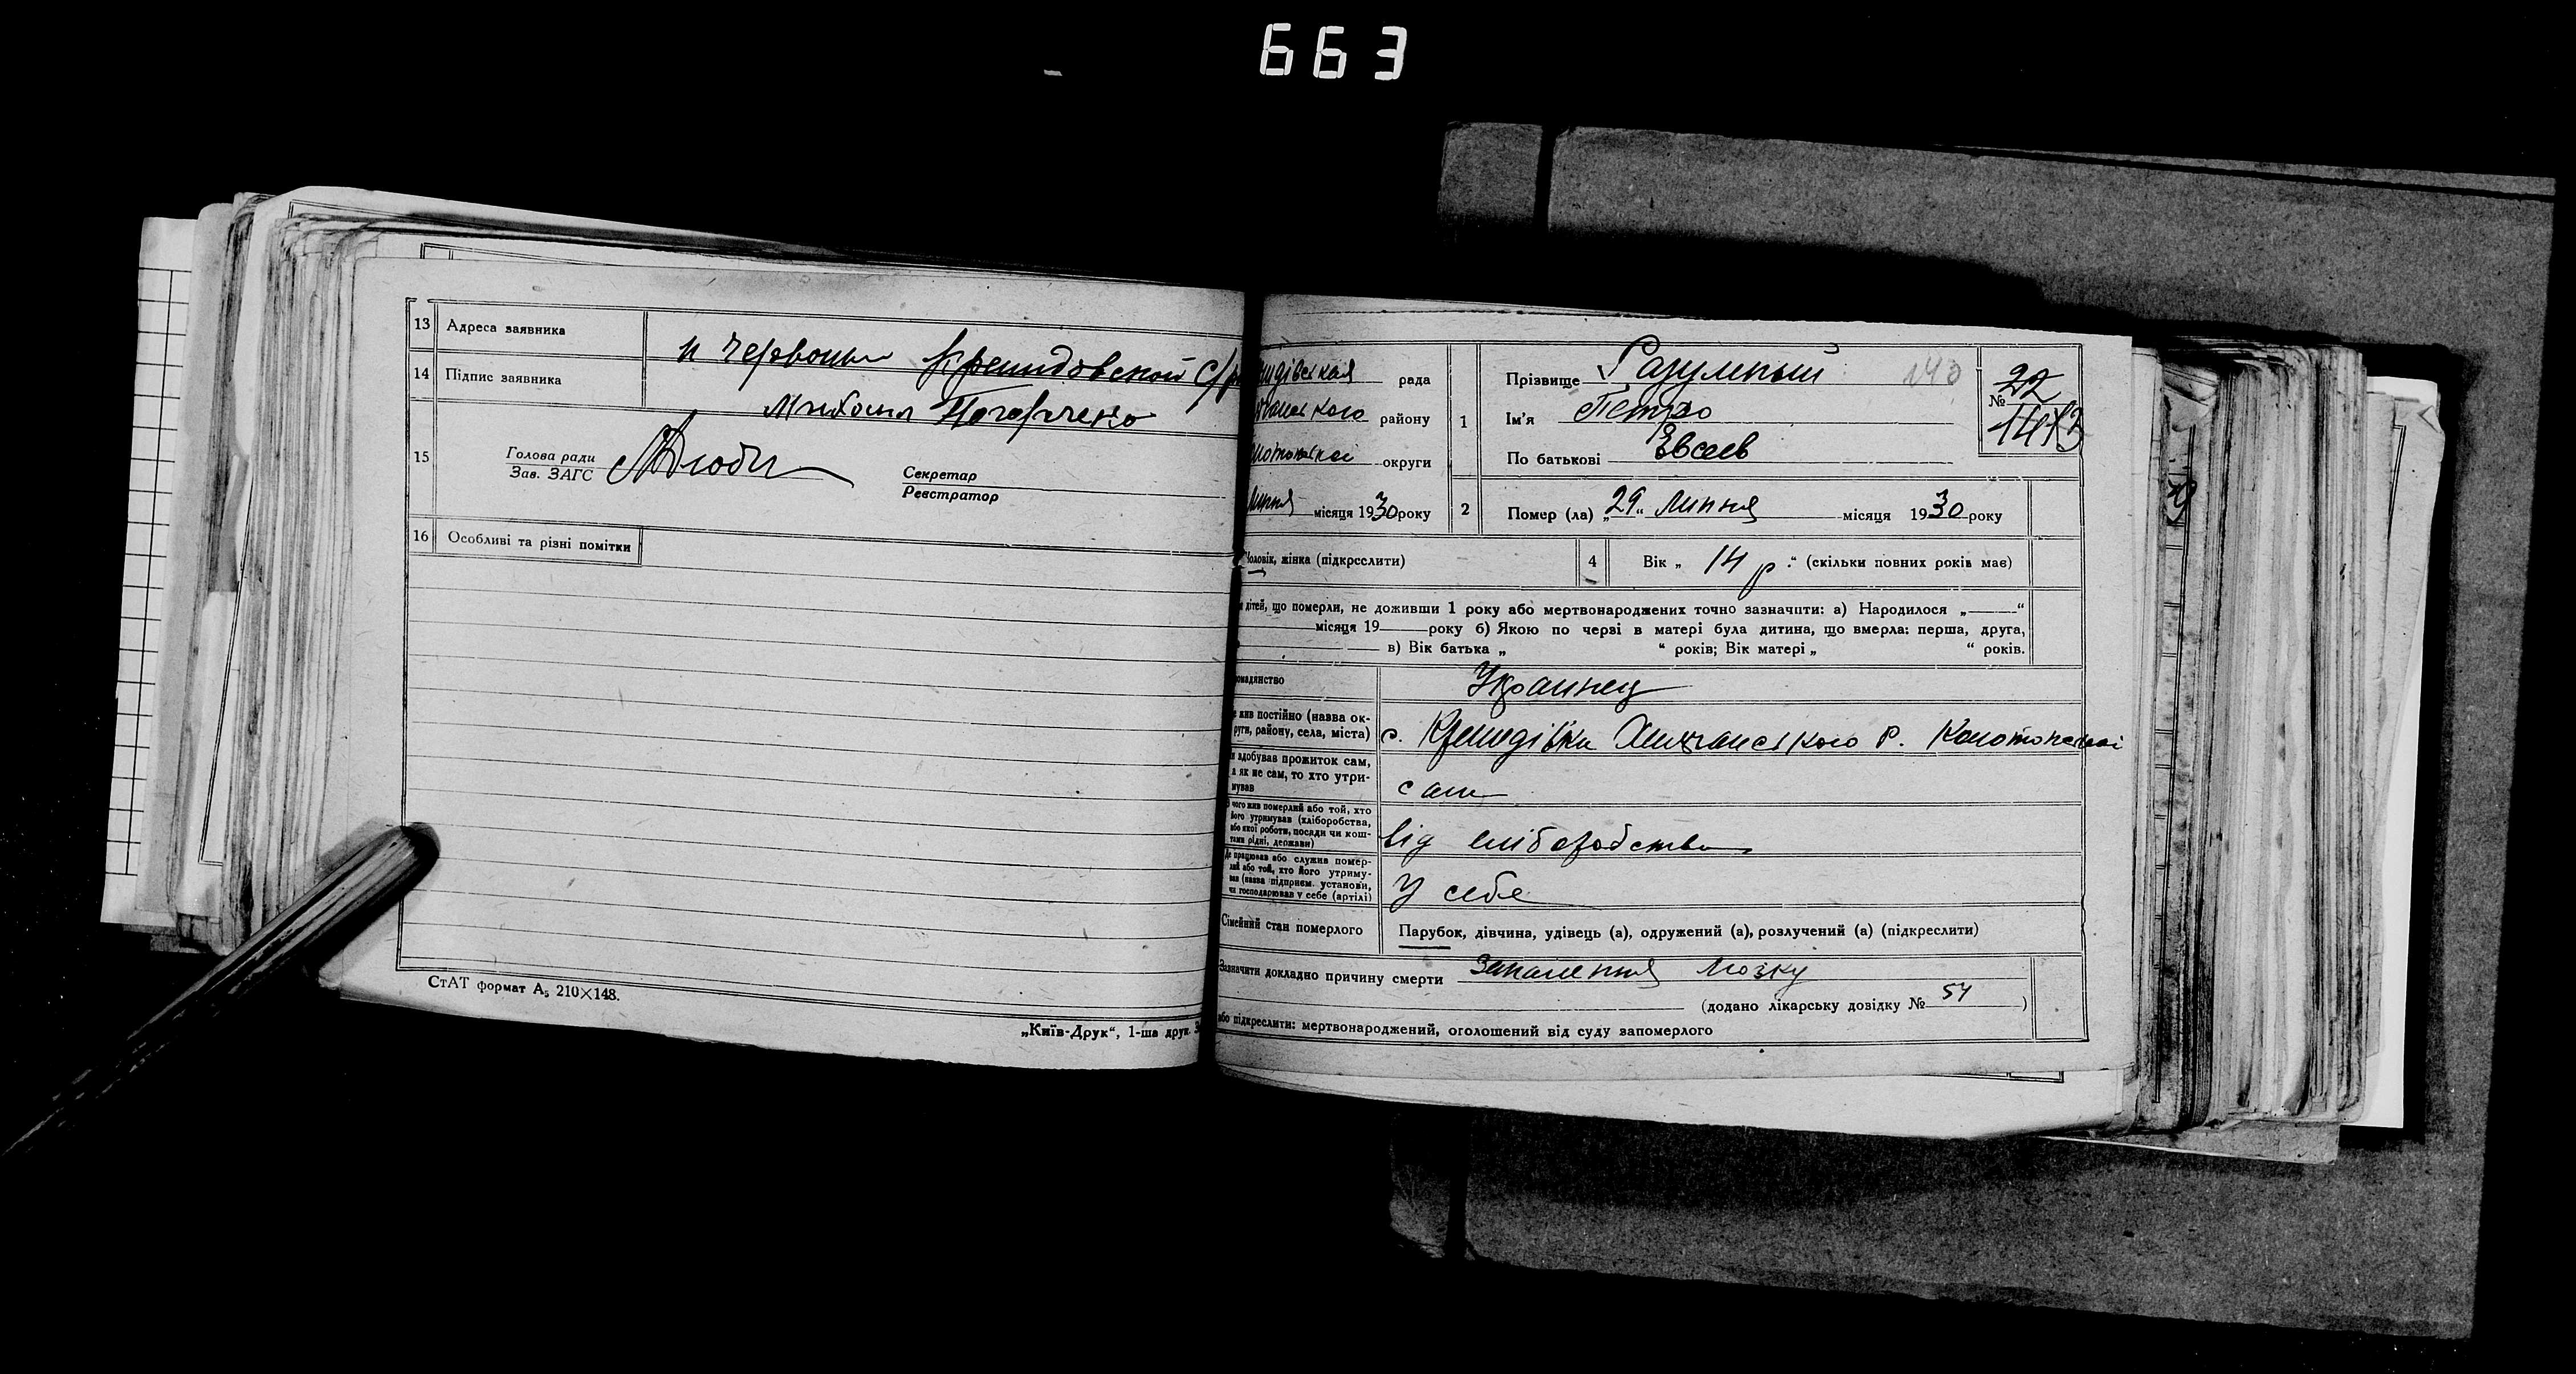 663
13 Адреса заявника
н Червоный Кремидовской С/р
14 Підпис заявника
Михаил
15 Голова ради
Зав. ЗАГС
Секретар
Реєстратор
16 Особливі та різні помітки
СтАТ формат А5 210×148.
„Київ-Друк“, 1-ша друк. З
рада
району
округи
Липня місяця 1930 року
1 Прізвище Разумный
Ім'я Петро
По батькові Евсеев
№ 22
2 Помер (ла) „29“ Липня місяця 1930 року
Чоловік, жінка (підкреслити)
4 Вік „ 14 р.“ (скільки повних років має)
дітей, що померли, не доживши 1 року або мертвонароджених точно зазначити: а) Народилося „ “
місяця 19 року б) Якою по черві в матері була дитина, що вмерла: перша, друга,
в) Вік батька „ “ років; Вік матері „ “ років.
омадянство Украинец
жив постійно (назва ок-
руги, району, села, міста) с. Р. Конотопської
здобував прожиток сам,
а як не сам, то хто утри-
мував сам
чого жив померлий або той, хто
його утримував (хліборобства,
або якої роботи, посади чи кош-
тами рідні, держави) від
Де працював або служив помер-
лий або той, хто його утриму-
вав (назва підприєм. установи,
чи господарював у себе (артілі) У себе
Сімейний стан померлого Парубок, дівчина, удівець (а), одружений (а), розлучений (а) (підкреслити)
Зазначити докладно причину смерти запалення мозку
(додано лікарську довідку № 54 )
або підкреслити: мертвонароджений, оголошений від суду запомерлого